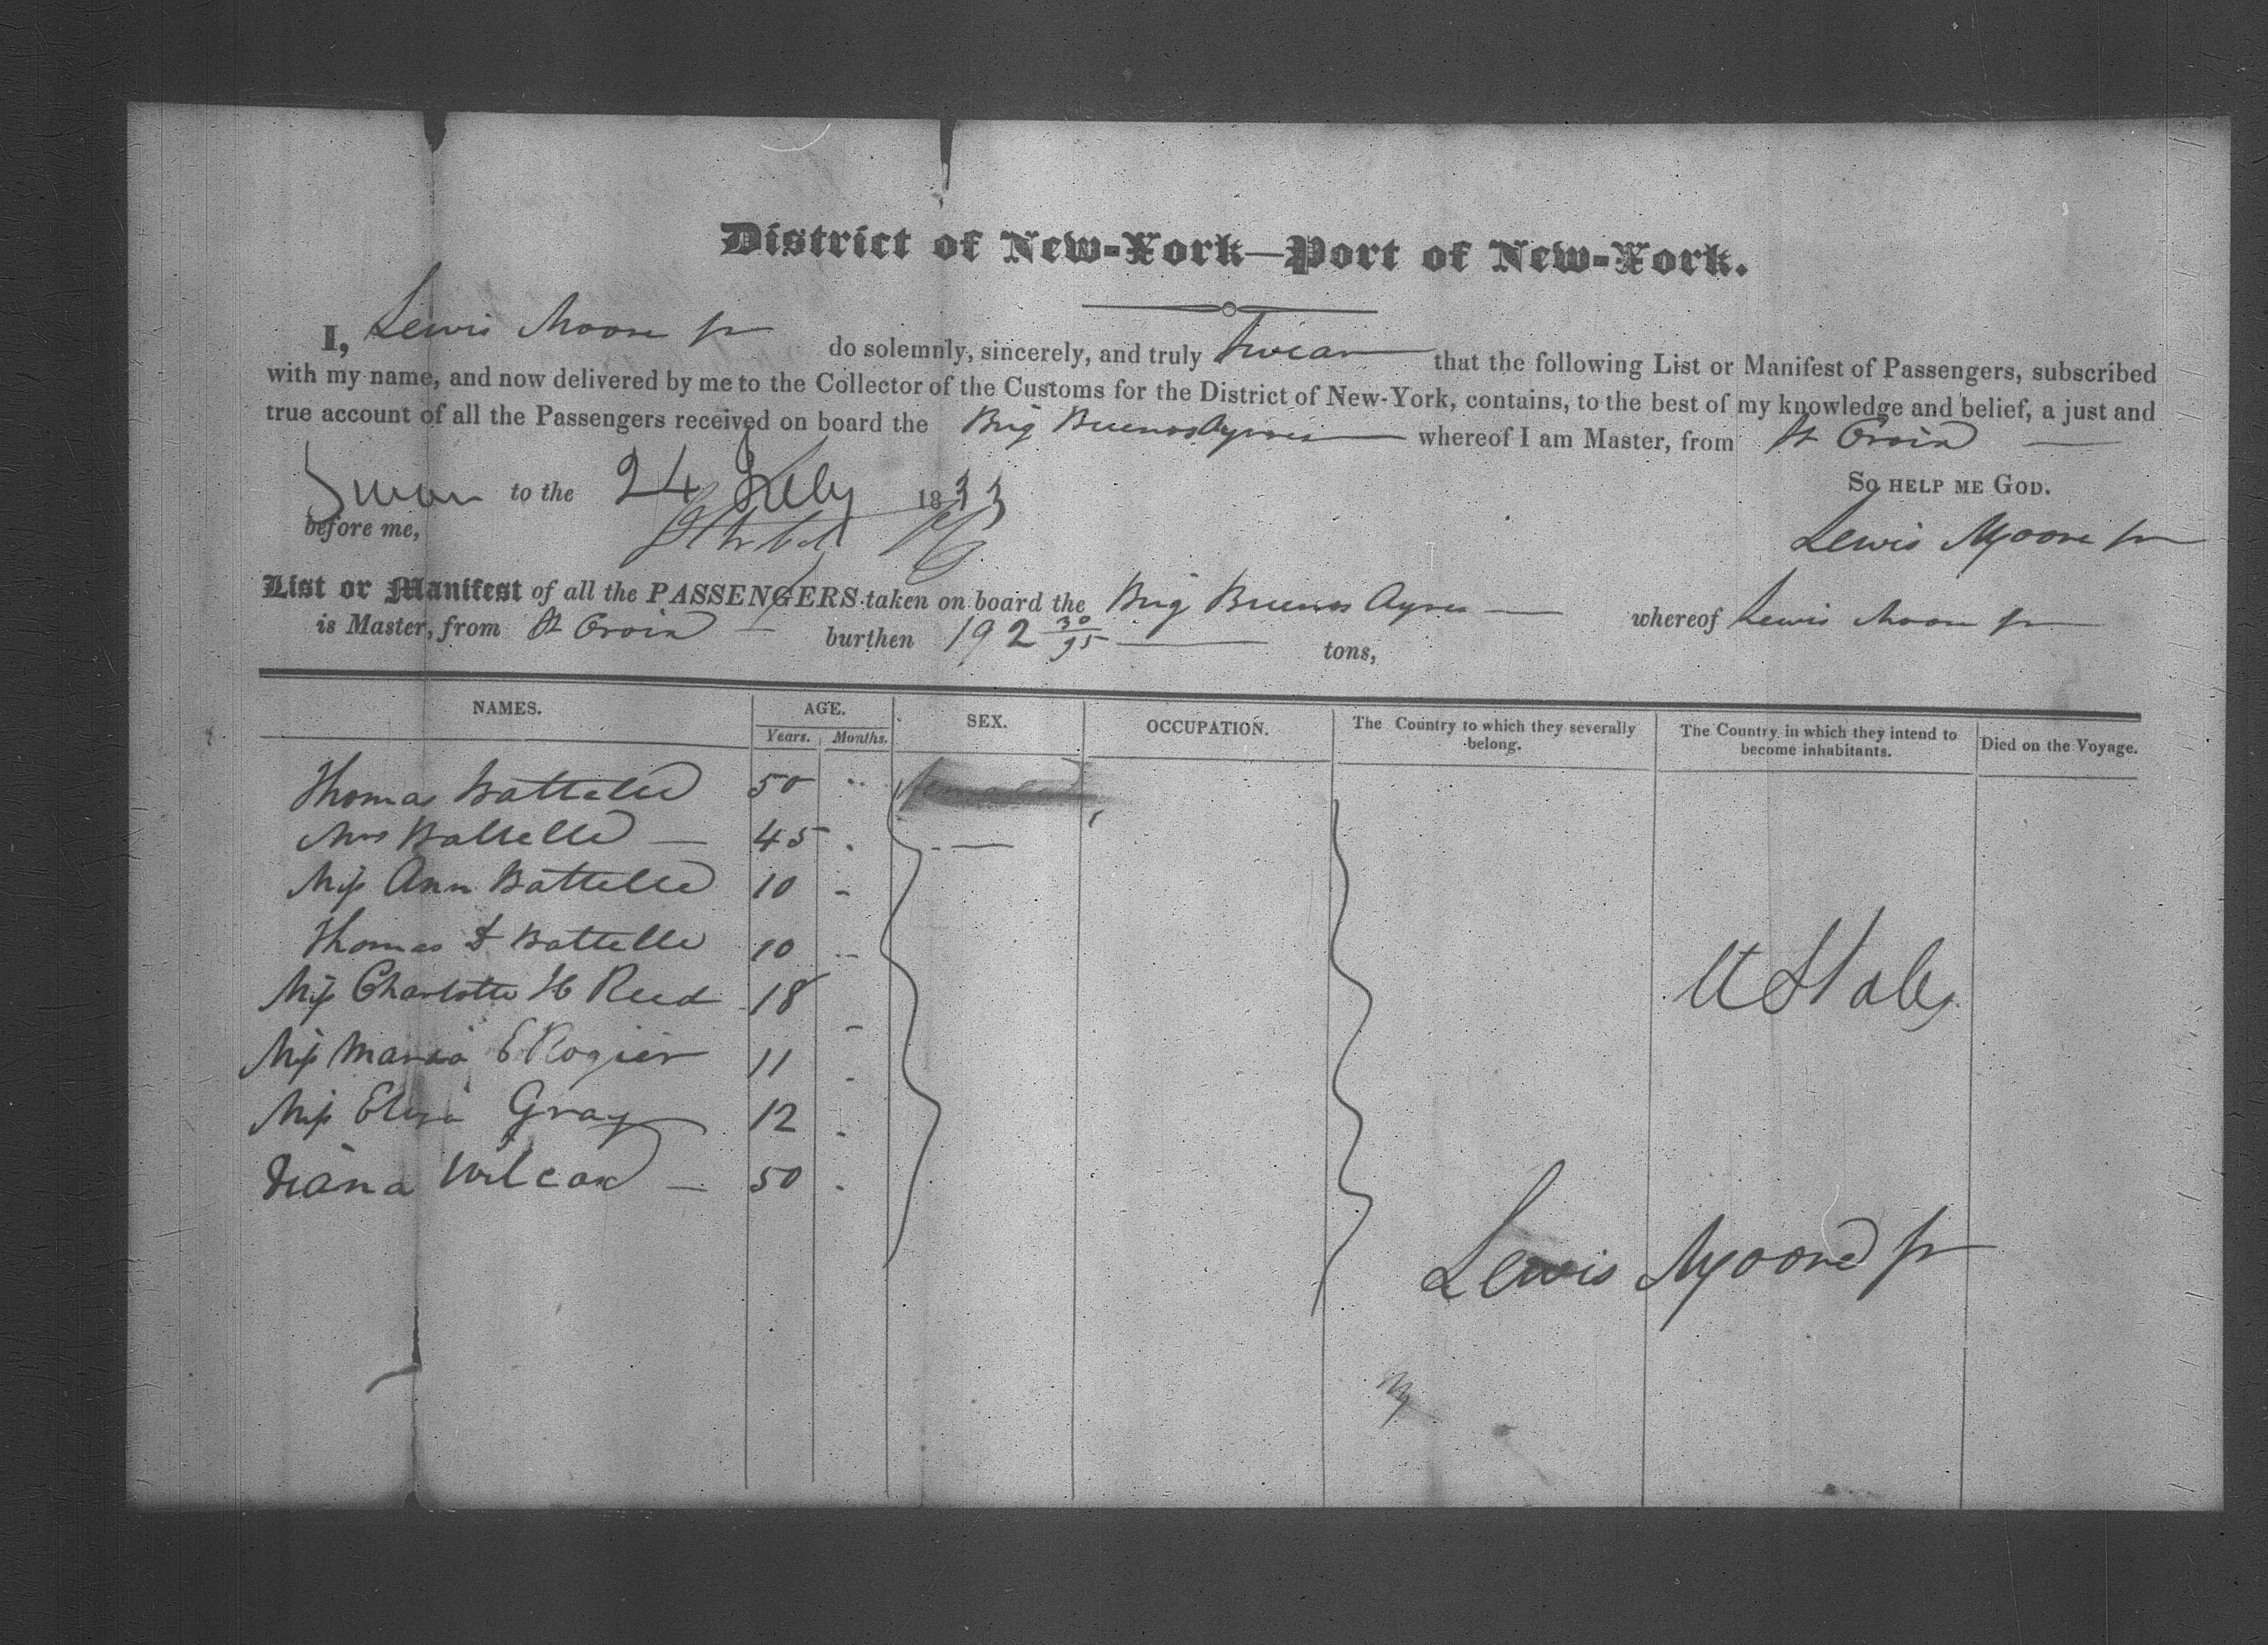 District of New-York—Port of New-York.
I, Lewis Moore Jr do solemnly, sincerely, and truly Swear that the following List or Manifest of Passengers, subscribed
with my name, and now delivered by me to the Collector of the Customs for the District of New-York, contains, to the best of my knowledge and belief, a just and
true account of all the Passengers received on board the Brig Buenos Ayres whereof I am Master, from St Croix
Sworn to the 24 July 1833 So help me God.
before me, Lewis Moore Jr
List or Manifest of all the PASSENGERS taken on board the Brig Buenos Ayres whereof Lewis Moore Jr
is Master, from St Croix burthen 192 30/95 tons,
NAMES. AGE. SEX. OCCUPATION. The Country to which they severally belong. The Country in which they intend to become inhabitants. Died on the Voyage.
Years. Months.
Thomas Battelle 50
Mrs Battelle 45
Miss Ann Battelle 10
Thomas Battelle 10
Miss Charlotte H Reed 18
Miss Maria E Rogier 11
Miss Eliza Gray 12
Diana Wilcox 50
U States
Lewis Moore Jr